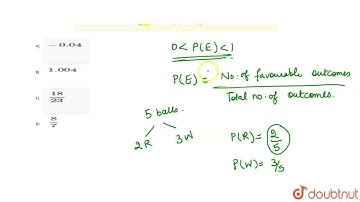 A) -0.04
B) 1.004
C) 18/23
D) 8/7
0 < P(E) < 1
P(E) = No. of favourable outcomes
Total no. of outcomes.
5 balls.
2R 3W
P(R) = 2/5
P(W) = 3/5
doubtnut